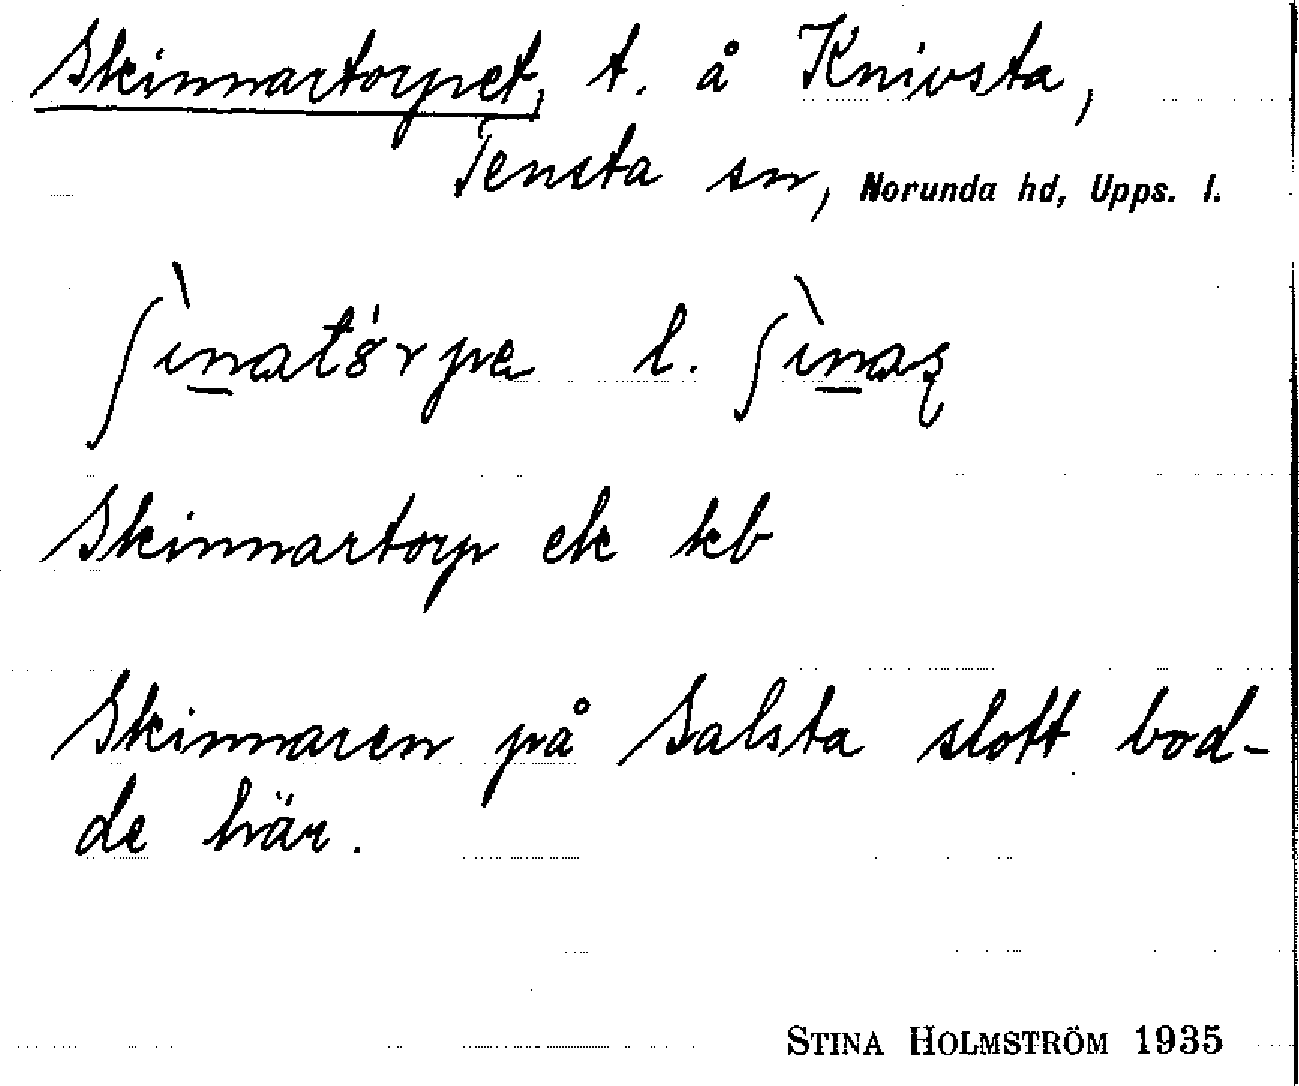 Skinnartorpet, t. å Knivsta,
Tensta sn, Norunda hd, Upps. l.
l.
Skinnartorp ek kb
Skinnaren på Salsta slott bod-
de här.
STINA HOLMSTRÖM 1935